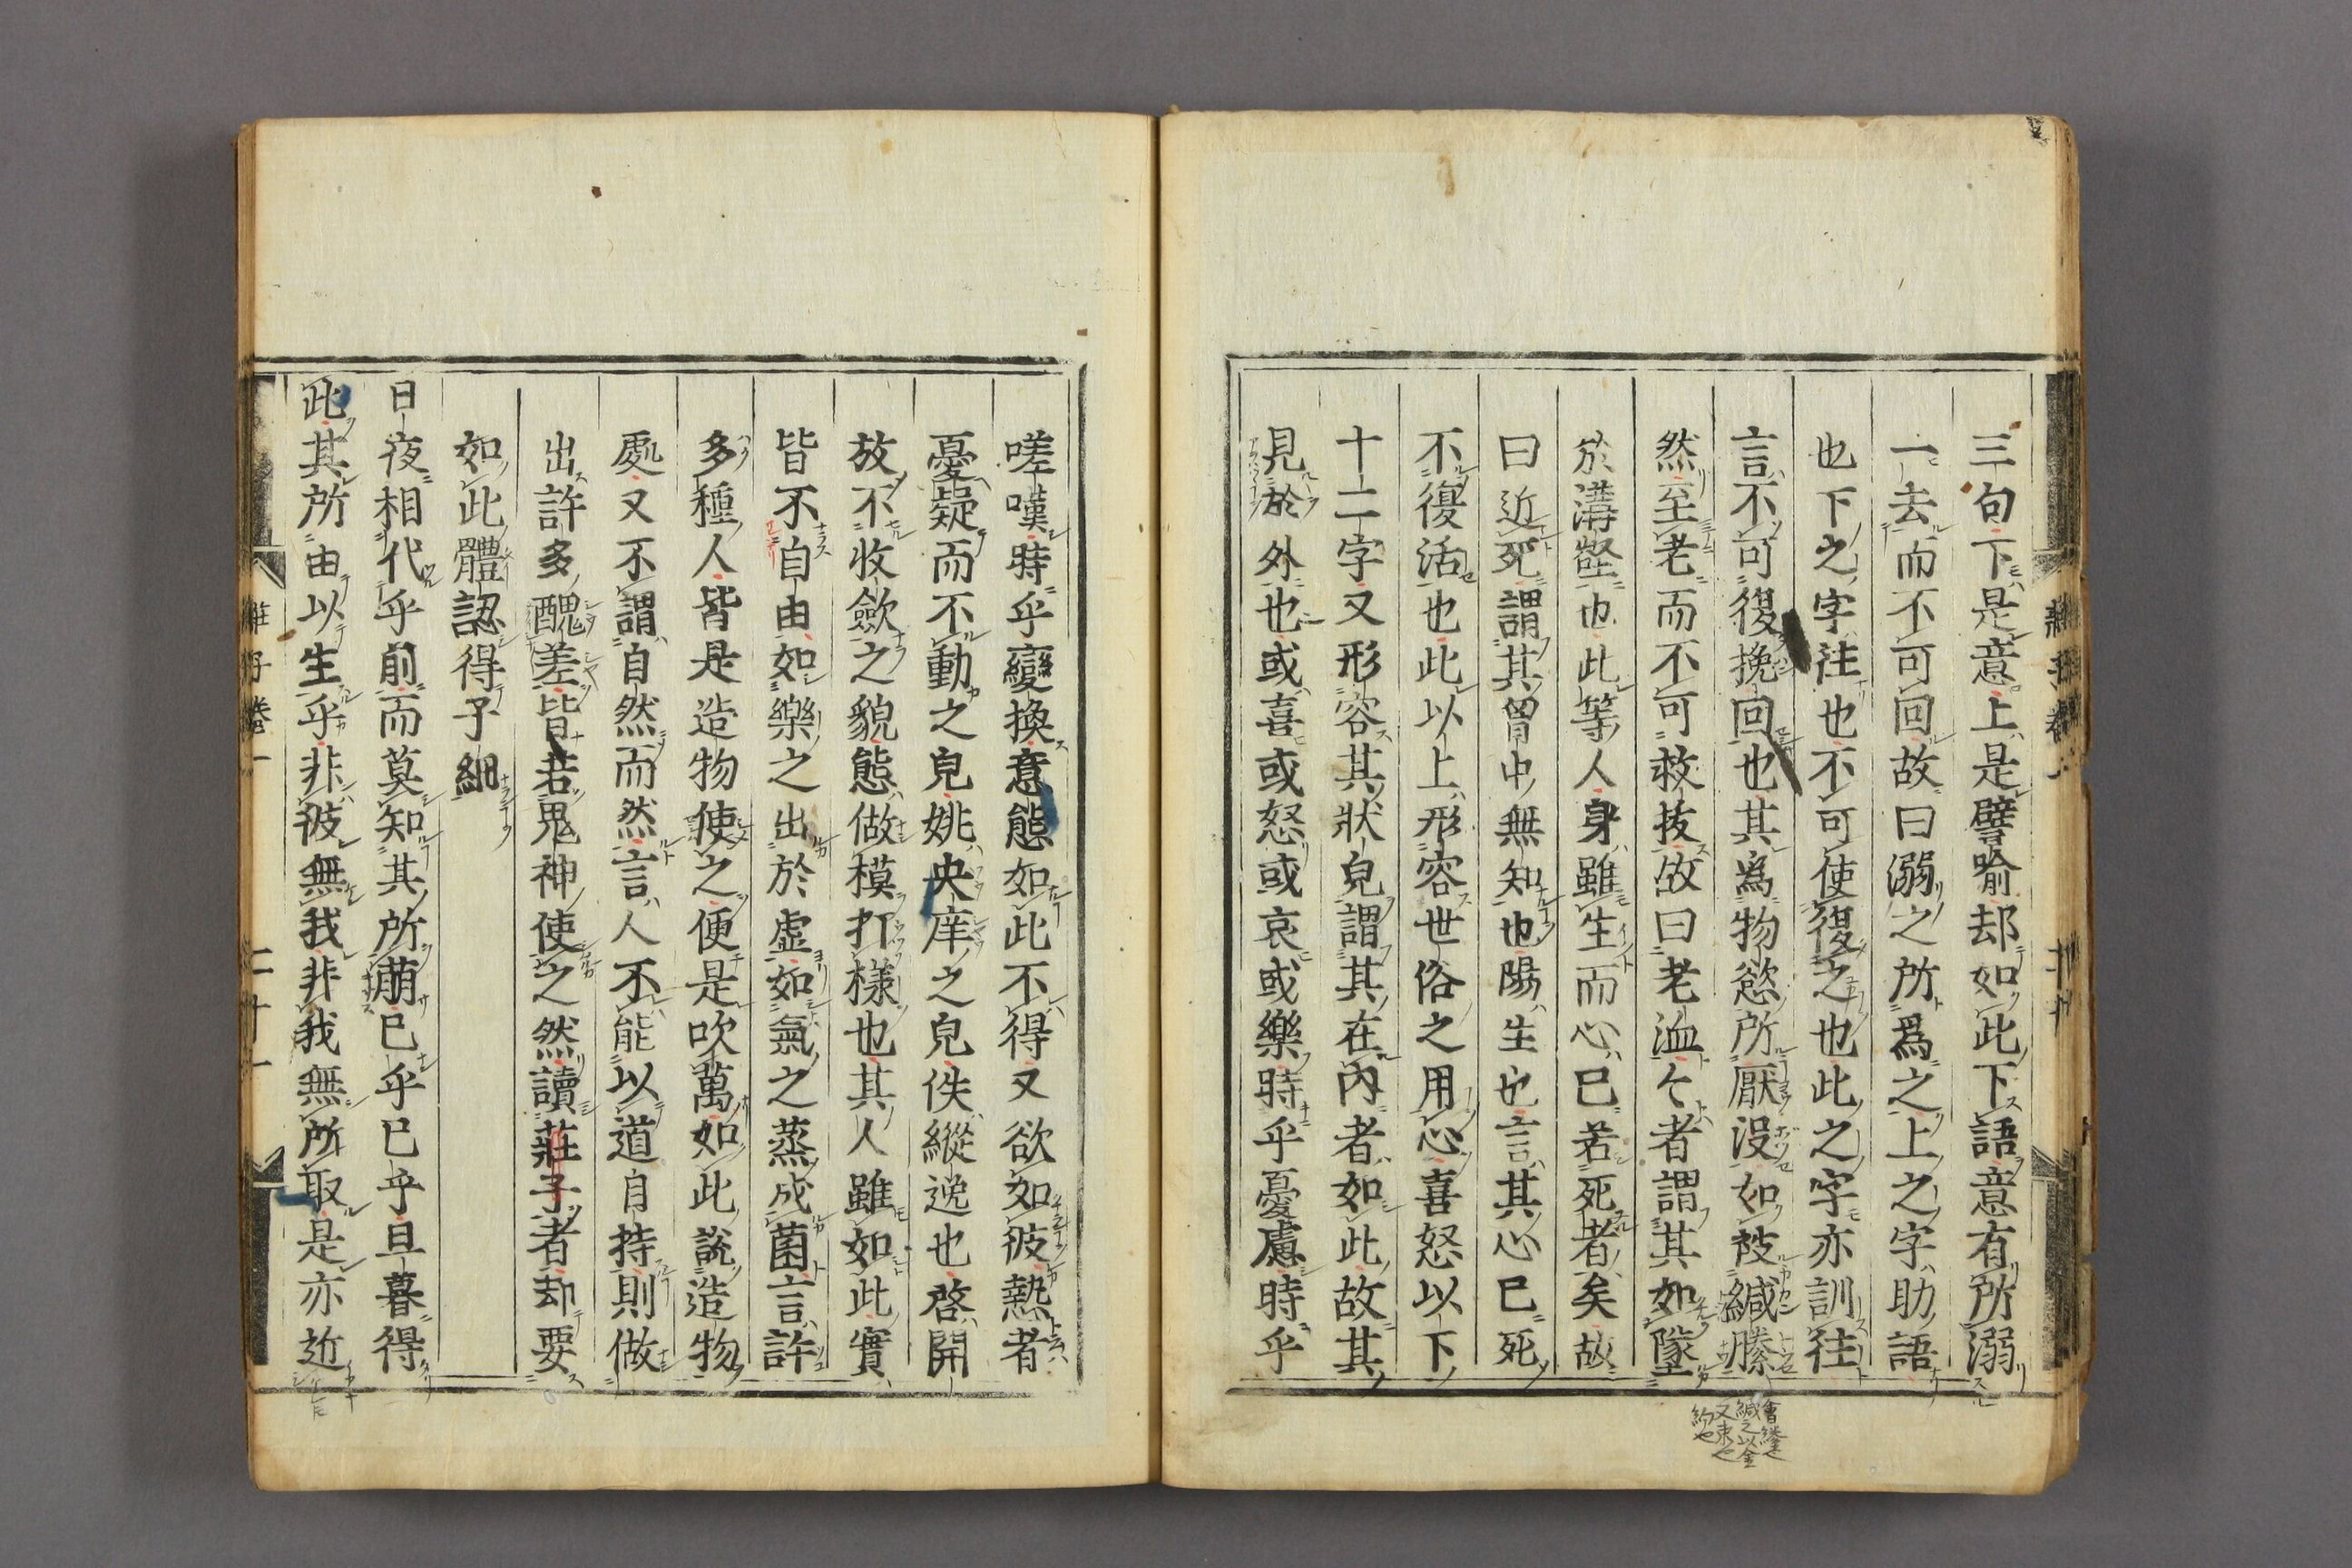 三句下是意上是譬喻却如此下語意有所溺
一去而不可回故曰溺之所爲之上之字助語
也下之字往也不可使復之也此之字亦訓往
言不可復挽回也其爲物慾所厭没如被緘縢
然至老而不可救拔故曰老洫々者謂其如墜
於溝壑也此等人身雖生而心已若死者矣故
曰近死謂其胷中無知也陽生也言其心已死
不復活也此以上形容世俗之用心喜怒以下
十二字又形容其狀皃謂其在內者如此故其
見於外也或喜或怒或哀或樂時乎憂慮時乎
嗟嘆時乎變換意態如此不得又欲如彼慹者
憂疑而不動之皃姚央庠之皃佚縱逸也啓開
放不收斂之貌態做模打樣也其人雖如此實
皆不自由如樂之出於虛如氣之蒸成菌言許
多種人皆是造物使之便是吹萬如此說造物
處又不謂自然而然言人不能以道自持則做
出許多醜差皆若鬼神使之然讀莊子者却要
如此體認得子細
日夜相代乎前而莫知其所萠已乎已乎旦暮得
此其所由以生乎非彼無我非我無所取是亦近
莊子卷一
二十一